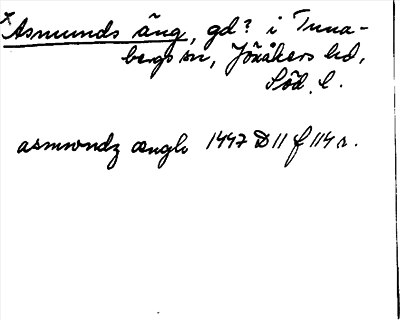 ×Asmunds äng, gd? i Tuna-
bergs sn, Jönåkers hd,
Söd. l.
asmwndz ængh 1447 D 11 f 114 r.